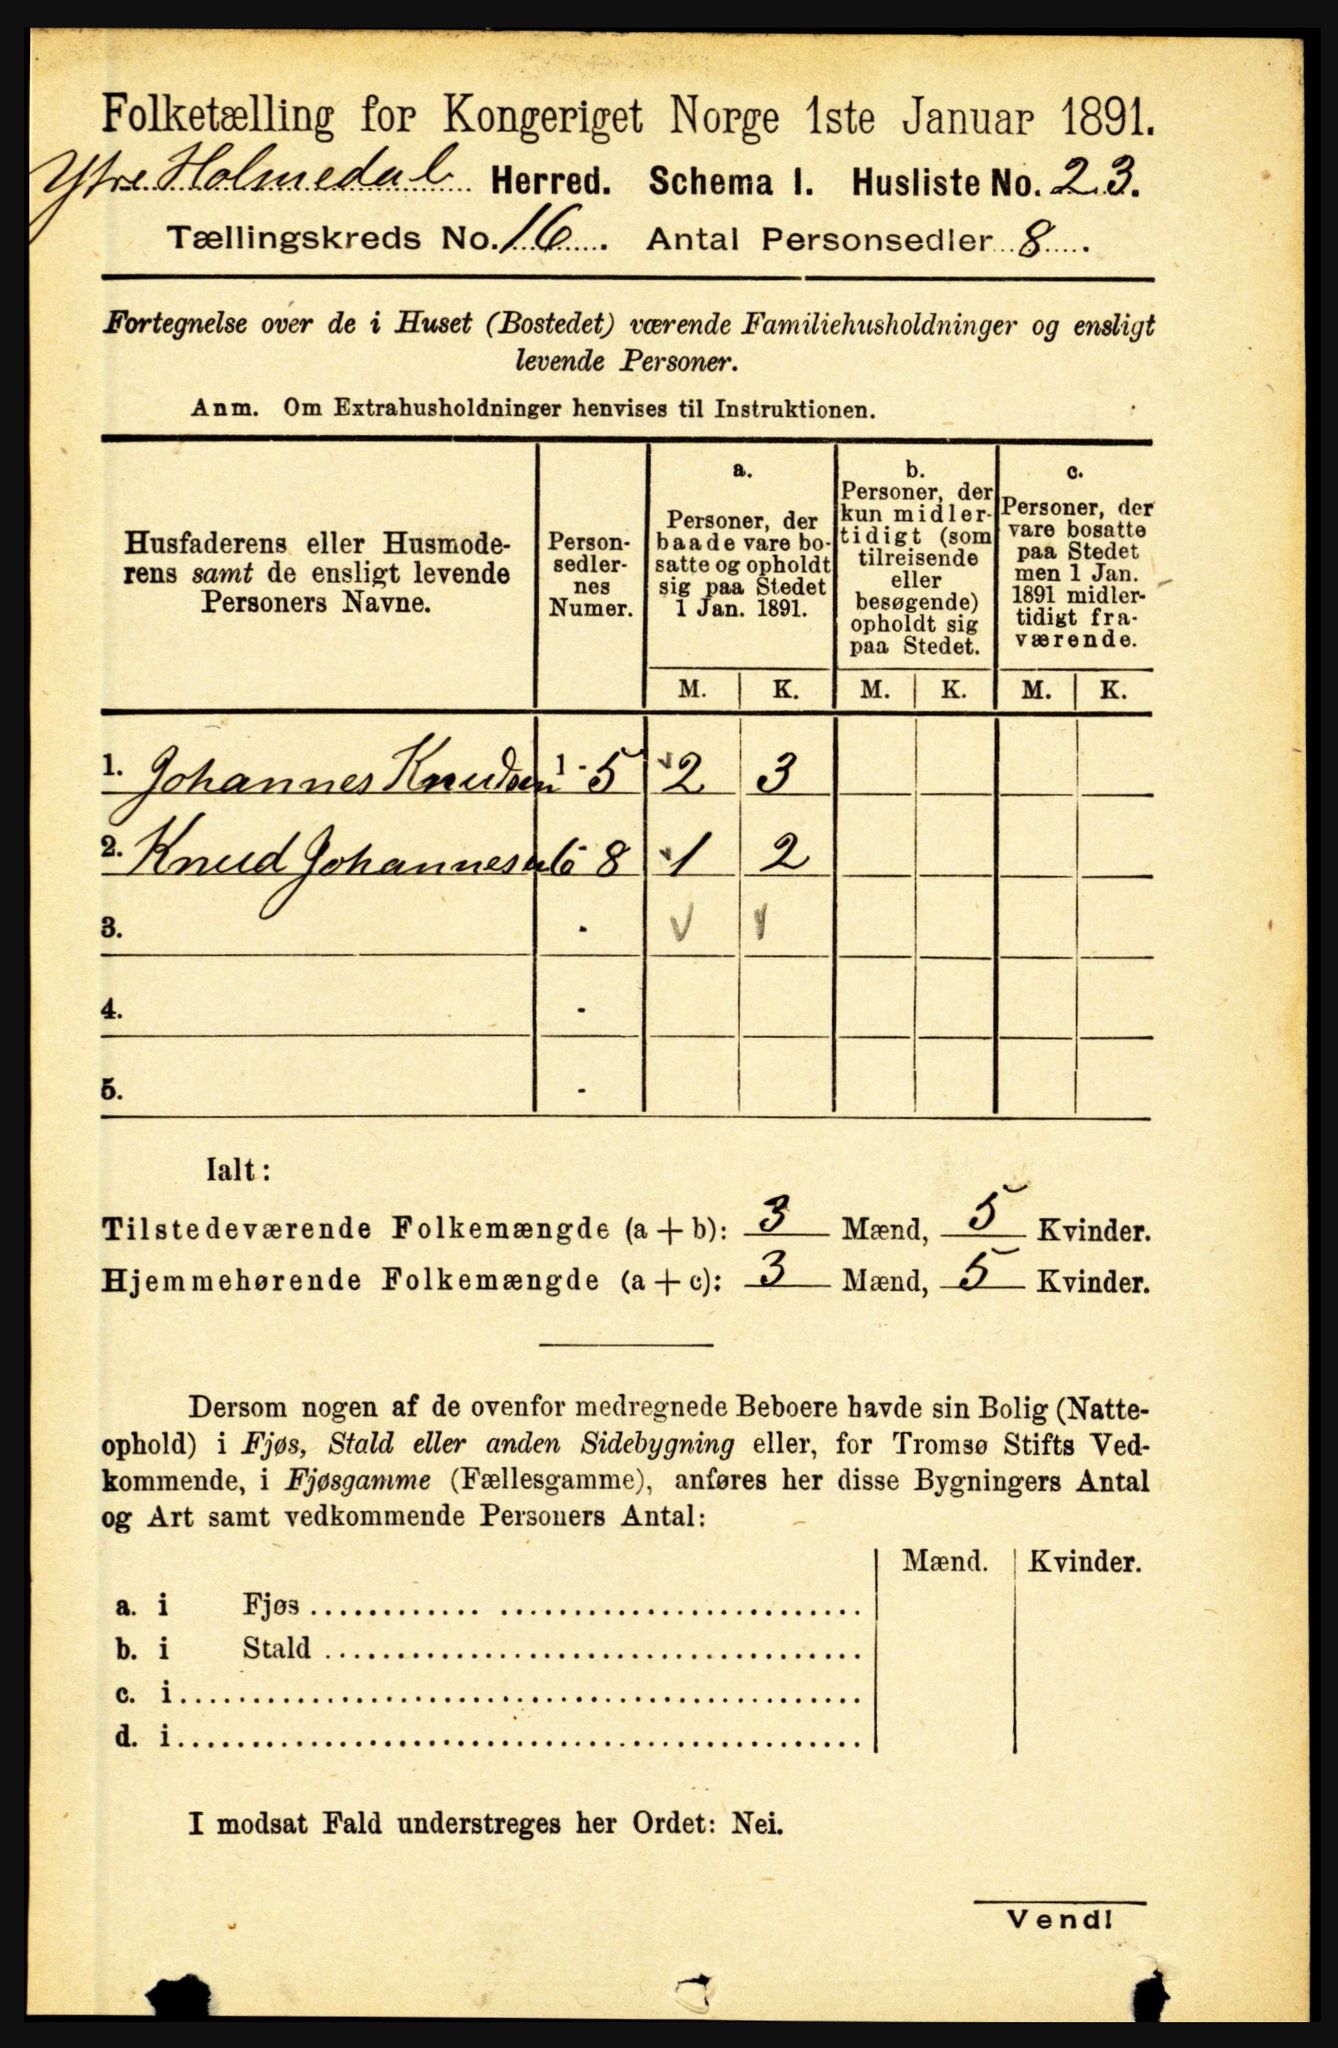 Folketælling for Kongeriget Norge 1ste Januar 1891.
Ytre Holmedal Herred. Schema 1. Husliste No. 23.
Tællingskreds No. 16. Antal Personsedler 8.
Fortegnelse over de i Huset (Bostedet) værende Familiehusholdninger og ensligt
levende Personer.
Anm. Om Extrahusholdninger henvises til Instruktionen.
Husfaderens eller Husmode-
rens samt de ensligt levende
Personers Navne.
Person-
sedler-
nes
Numer.
a.
Personer, der
baade vare bo-
satte og opholdt
sig paa Stedet
1 Jan. 1891.
b.
Personer, der
kun midler-
tidigt (som
tilreisende
eller
besøgende)
opholdt sig
paa Stedet.
c.
Personer, der
vare bosatte
paa Stedet
men 1 Jan.
1891 midler-
tidigt fra-
værende.
M. K. M. K. M. K.
1. Johannes Knudsen 1 - 5 2 3
2. Knud Johannesen 6 - 8 1 2
3. -
4. -
5. -
Ialt:
Tilstedeværende Folkemængde (a + b): 3 Mænd, 5 Kvinder.
Hjemmehørende Folkemængde (a + c): 3 Mænd, 5 Kvinder.
Dersom nogen af de ovenfor medregnede Beboere havde sin Bolig (Natte-
ophold) i Fjøs, Stald eller anden Sidebygning eller, for Tromsø Stifts Ved-
kommende, i Fjøsgamme (Fællesgamme), anføres her disse Bygningers Antal
og Art samt vedkommende Personers Antal:
Mænd. Kvinder.
a. i Fjøs
b. i Stald
c. i
d. i
I modsat Fald understreges her Ordet: Nei.
Vend!